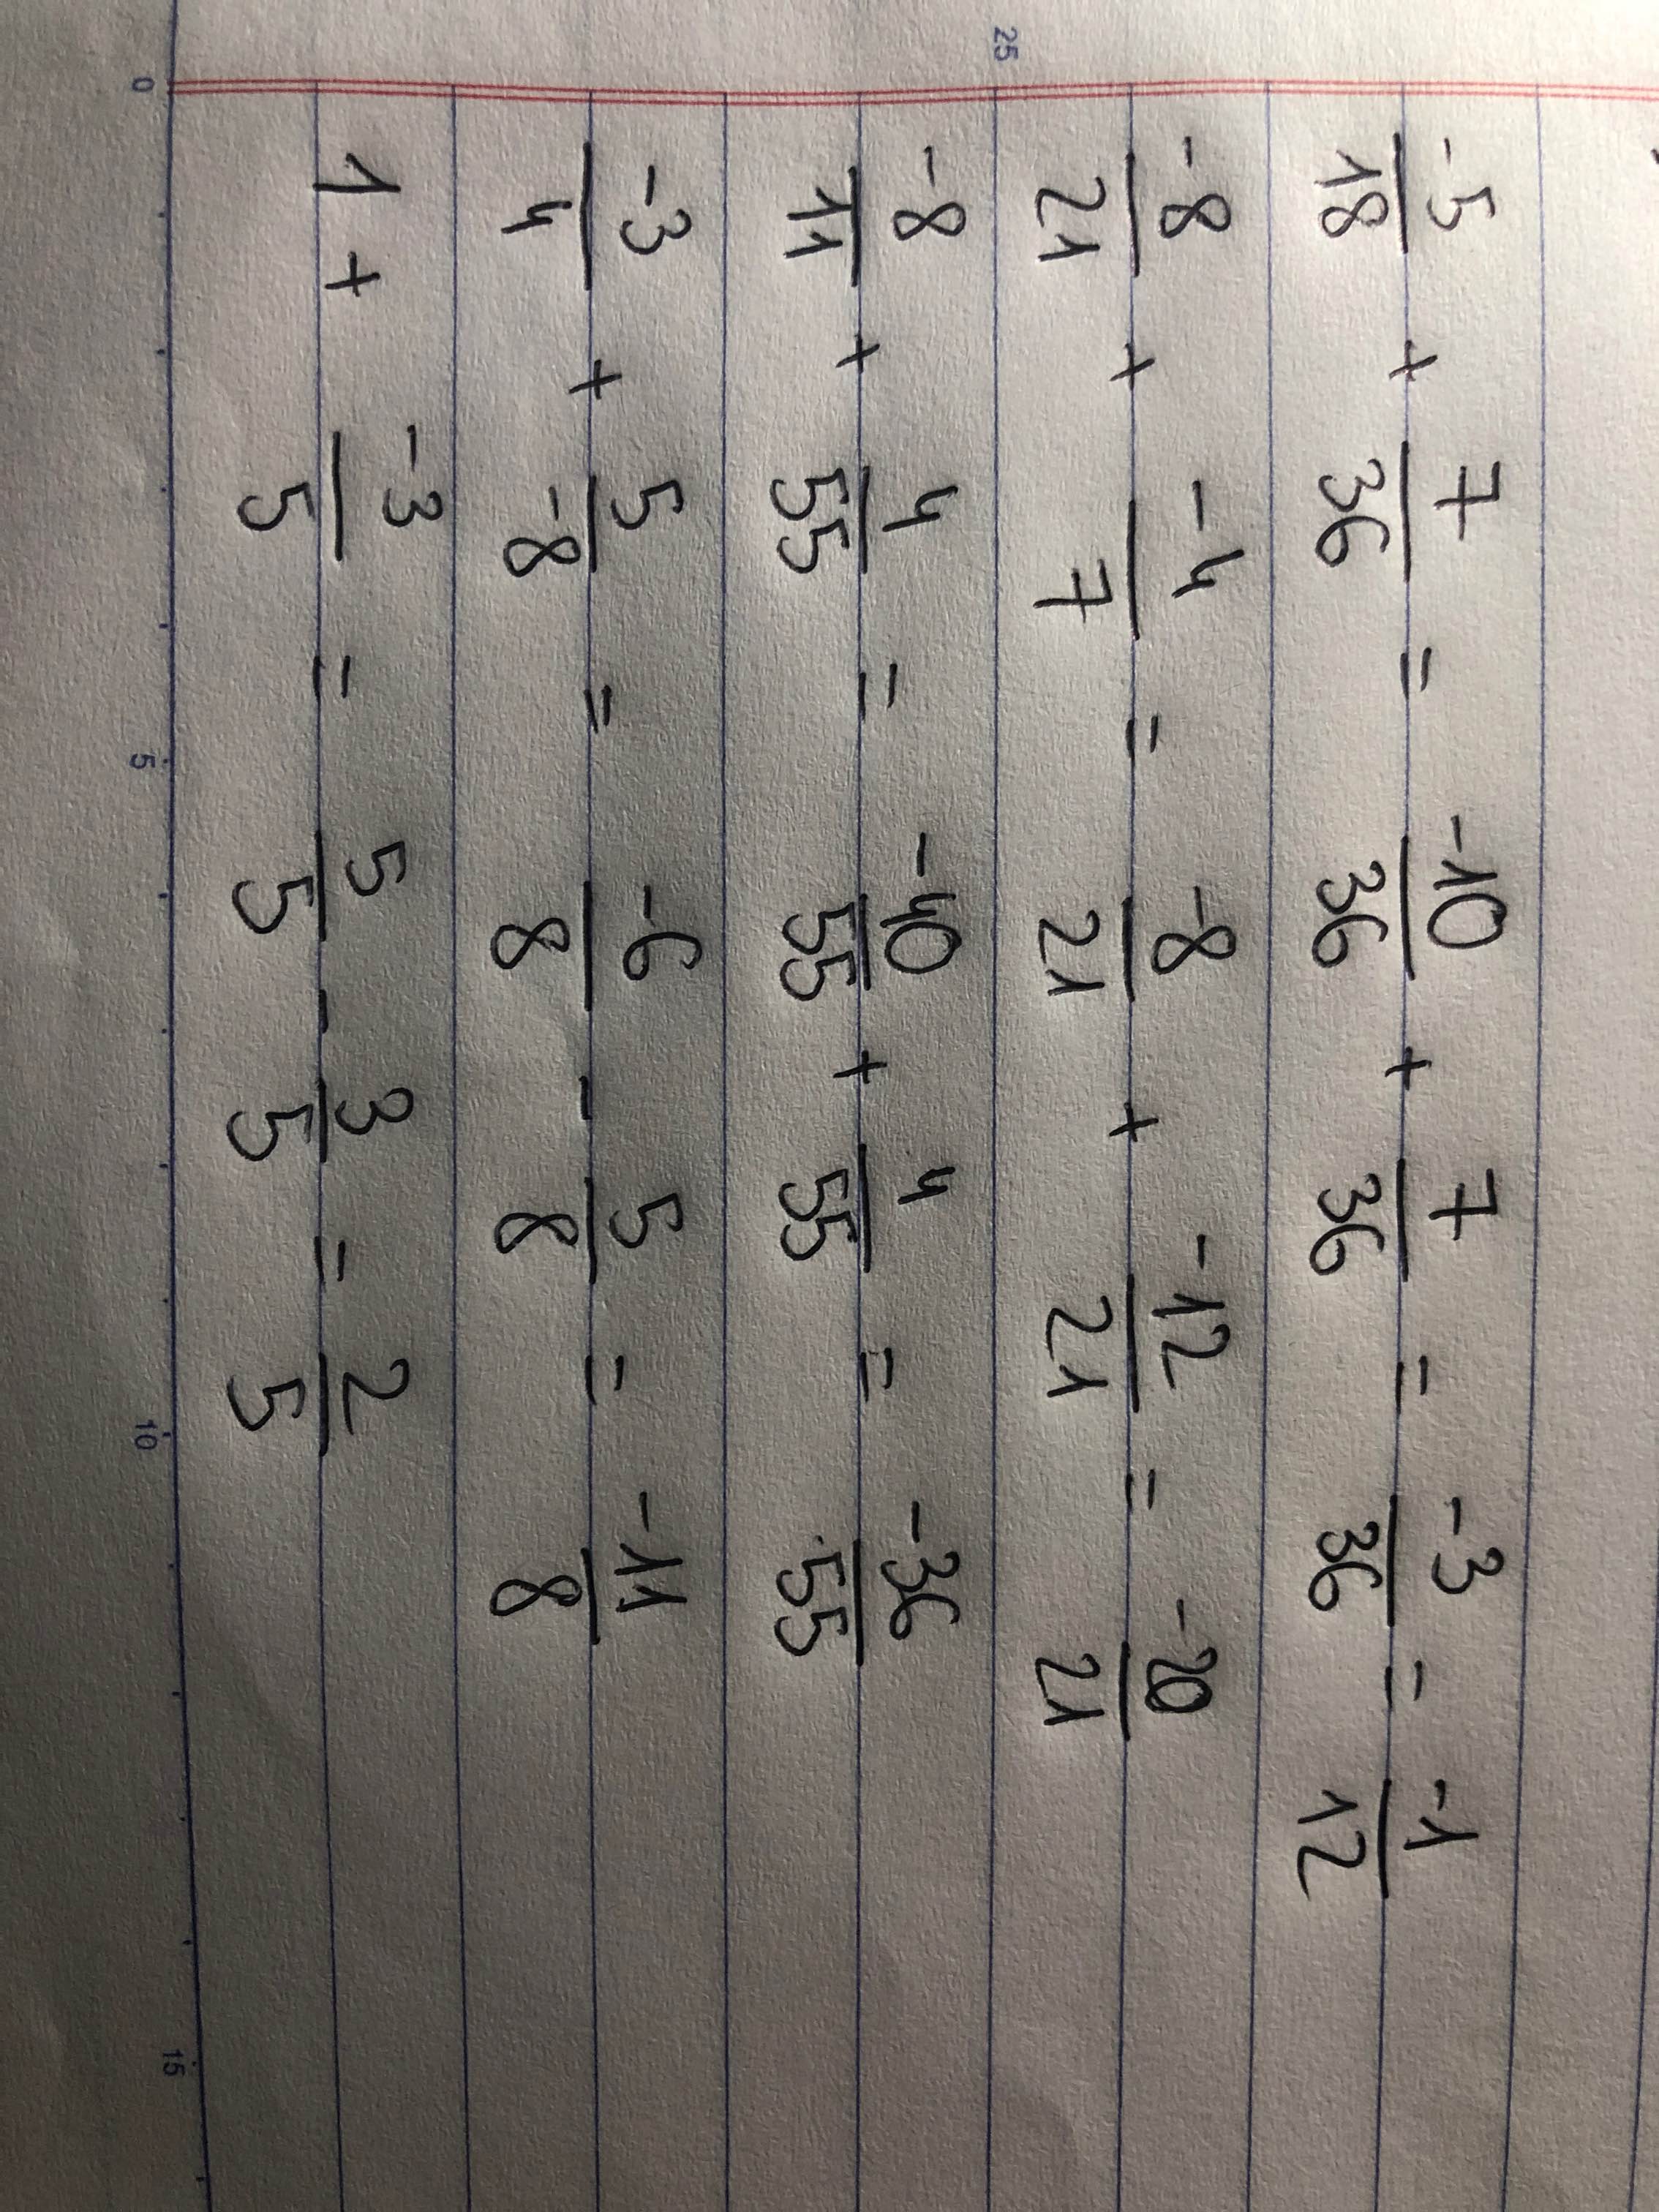 -5/18 + 7/36 = -10/36 + 7/36 = -3/36 = -1/12
-8/21 + -4/7 = -8/21 + -12/21 = -20/21
25
-8/11 + 4/55 = -40/55 + 4/55 = -36/55
-3/4 + 5/-8 = -6/8 - 5/8 = -11/8
1 + -3/5 = 5/5 - 3/5 = 2/5
0 5 10 15